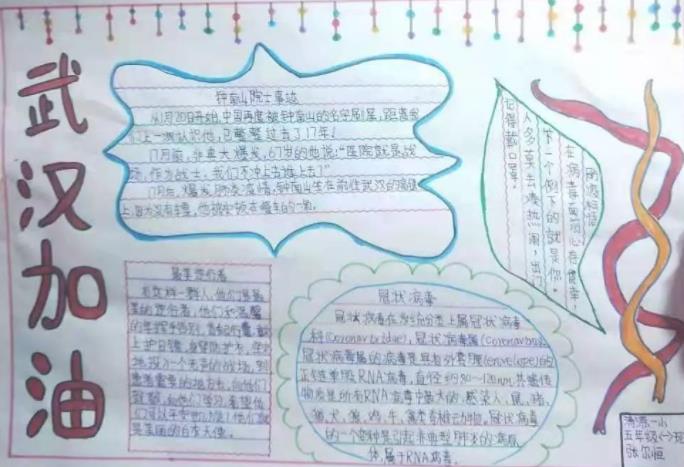 武汉加油
钟南山院士事迹
从1月20日开始,中国再度被钟南山的名字刷屏,距离我
们上一次认识他,已整整过去了17年!
17年前,非典大爆发,67岁的他说:“医院就是战
场,作为战士,我们不冲上去谁上去?”
17年后,爆发肺炎疫情,钟南山坐在前往武汉的高铁
上,
温馨标语
在病毒面前心存侥幸,
下一个倒下的就是你。
人多莫去凑热闹,出门
记得戴口罩。
最美逆行者
有这样一群人,他们是最
美的逆行者,他们
上护目镜,身穿防护衣,
地投入一个无声的战场,到
最需要的地方去,向他们
致敬,向他们学习,希望他
们可以平安
是美丽的白衣天使。
冠状病毒
冠状病毒在系统分类上属冠状病毒
科(Coronaviridae),冠状病毒属(Coronavirus)
冠状病毒属的病毒是具有外套膜(envelope)的
正链单股RNA病毒,直径约80~120nm,其遗传
物质是所有RNA病毒中最大的,感染人、鼠、猪、
猫、犬、狼、鸡、牛、禽类脊椎动物。冠状病毒
的一个变种是引起非典型肺炎的病原
体,属于RNA病毒。
一小
五年级(一)班
张尔恒